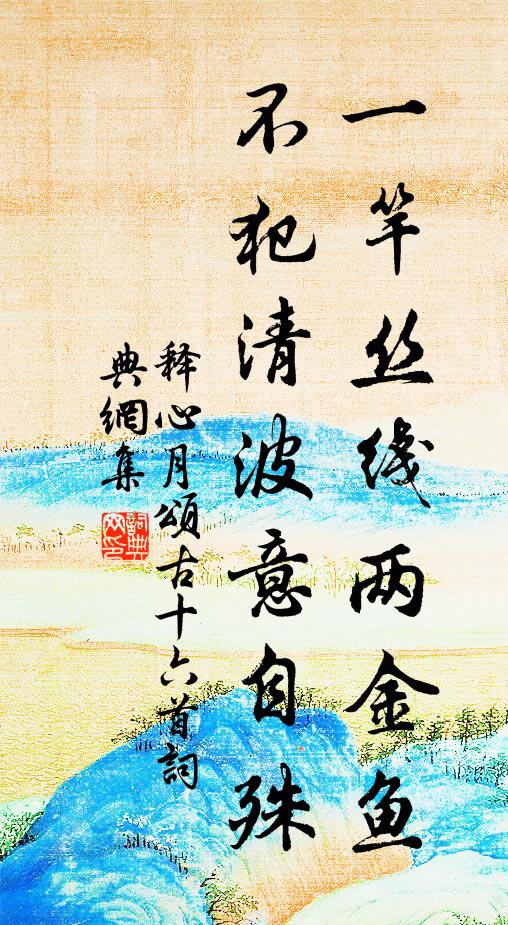 一竿丝线两金鱼
不犯清波意自殊
释心月頌古十六首詞
典網集
詞典网印